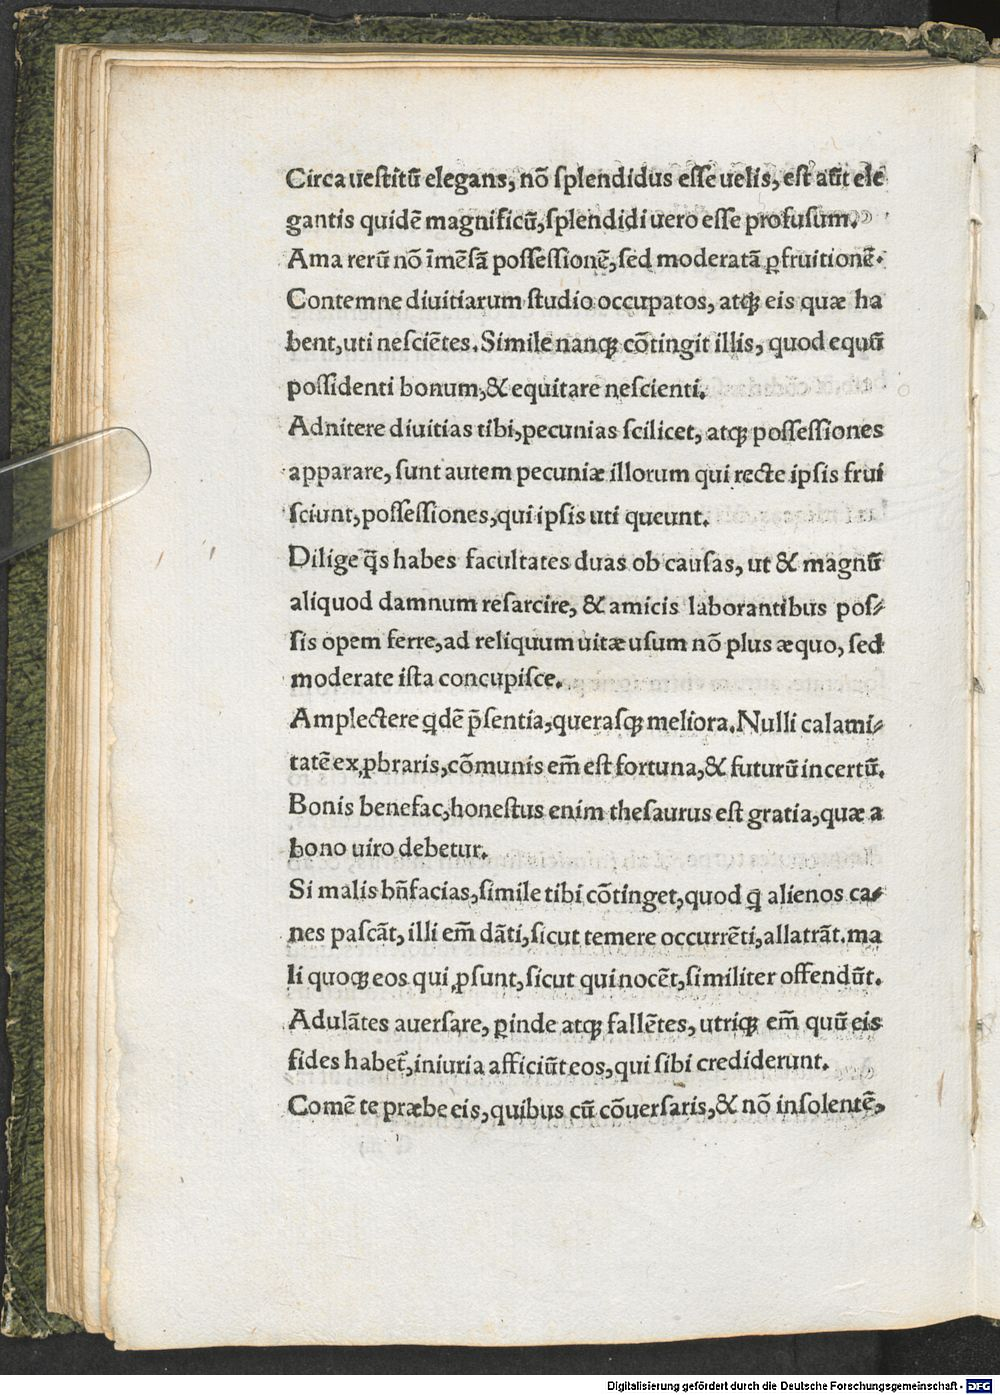 Circa ueſtitū elegans, nō ſplendidus eſſe uelis, eſt aūt ele
gantis quidē magnificū, ſplendidi uero eſſe profuſum.
Ama rerū nō īmēſā poſſeſſionē, ſed moderatā ꝑfruitionē.
Contemne diuitiarum ſtudio occupatos, atqꝫ eis quæ ha
bent, uti neſciētes. Simile nanqꝫ cōtingit illis, quod equū
poſſidenti bonum, & equitare neſcienti.
Adnitere diuitias tibi, pecunias ſcilicet, atqꝫ poſſeſſiones
apparare, ſunt autem pecuniæ illorum qui recte ipſis frui
ſciunt, poſſeſſiones, qui ipſis uti queunt.
Dilige q̄s habes facultates duas ob cauſas, ut & magnū
aliquod damnum reſarcire, & amicis laborantibus poſ-
ſis opem ferre, ad reliquum uitæ uſum nō plus æquo, ſed
moderate iſta concupiſce.
Amplectere qͥdē p̄ſentia, queraſqꝫ meliora. Nulli calami-
tatē exꝓbraris, cōmunis em̄ eſt fortuna, & futurū incertū.
Bonis benefac, honeſtus enim theſaurus eſt gratia, quæ a
bono uiro debetur.
Si malis bn̄facias, ſimile tibi cōtinget, quod qͥ alienos ca-
nes paſcāt, illi em̄ dāti, ſicut temere occurrēti, allatrāt. ma
li quoqꝫ eos qui ꝓſunt, ſicut qui nocēt, ſimiliter offendūt.
Adulātes auerſare, ꝑinde atqꝫ fallētes, utriqꝫ em̄ quū eis
fides habet᷑, iniuria afficiūt eos, qui ſibi crediderunt.
Comē te præbe eis, quibus cū cōuerſaris, & nō inſolentē,
Digitalisierung gefördert durch die Deutsche Forschungsgemeinschaft - DFG